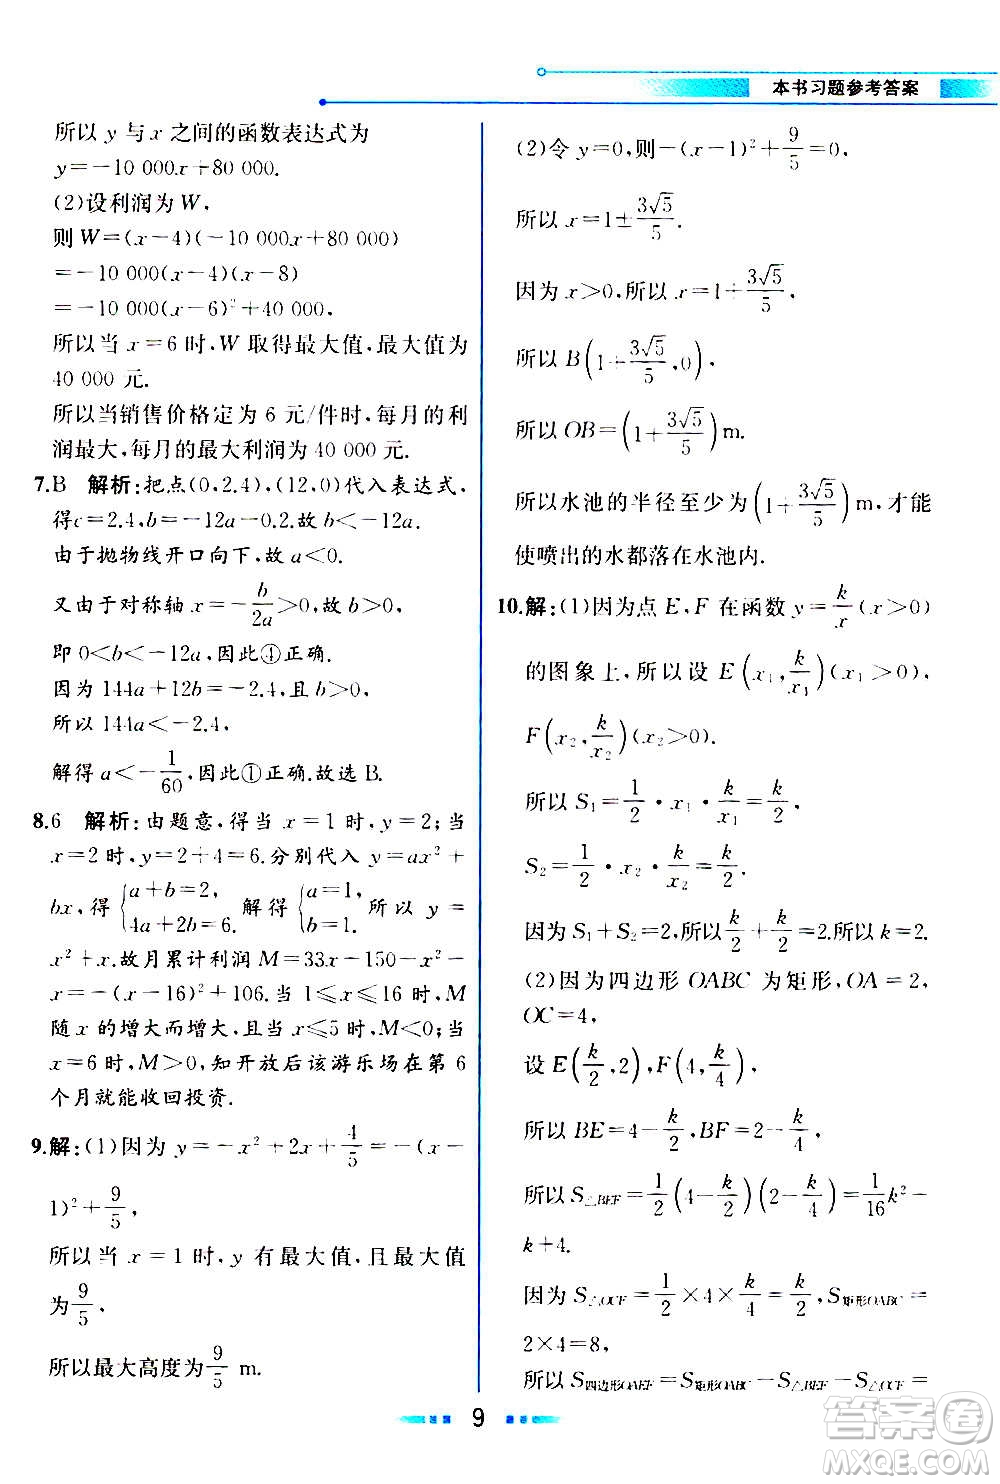 本书习题参考答案
所以 y 与 x 之间的函数表达式为
y=-10 000x+80 000.
(2)设利润为 W,
则 W=(x-4)(-10 000x+80 000)
=-10 000(x-4)(x-8)
=-10 000(x-6)²+40 000,
所以当 x=6 时,W 取得最大值,最大值为
40 000 元.
所以当销售价格定为 6 元/件时,每月的利
润最大,每月的最大利润为 40 000 元.
7.B 解析:把点(0,2.4),(12,0)代入表达式,
得c=2.4,b=-12a-0.2.故 b<-12a.
由于抛物线开口向下,故 a<0.
又由于对称轴 x=-b/2a>0,故 b>0,
即 0<b<-12a,因此④正确.
因为 144a+12b=-2.4,且 b>0,
所以 144a<-2.4,
解得 a<-1/60,因此①正确.故选 B.
8.6 解析:由题意,得当 x=1 时,y=2;当
x=2 时,y=2+4=6.分别代入 y=ax²+
bx,得{a+b=2, 4a+2b=6. 解得{a=1, b=1. 所以 y=
x²+x.故月累计利润 M=33x-150-x²-
x=-(x-16)²+106.当 1≤x≤16 时,M
随 x 的增大而增大,且当 x≤5 时,M<0;当
x=6 时,M>0,知开放后该游乐场在第 6
个月就能收回投资.
9.解:(1)因为 y=-x²+2x+4/5=-(x-
1)²+9/5,
所以当 x=1 时,y 有最大值,且最大值
为9/5,
所以最大高度为9/5 m.
(2)令 y=0,则-(x-1)²+9/5=0,
所以 x=1±3√5/5.
因为 x>0,所以 x=1+3√5/5,
所以 B(1+3√5/5,0),
所以 OB=(1+3√5/5)m.
所以水池的半径至少为(1+3√5/5)m,才能
使喷出的水都落在水池内.
10.解:(1)因为点 E,F 在函数 y=k/x(x>0)
的图象上,所以设 E(x₁,k/x₁)(x₁>0),
F(x₂,k/x₂)(x₂>0).
所以 S₁=1/2·x₁·k/x₁=k/2,
S₂=1/2·x₂·k/x₂=k/2.
因为 S₁+S₂=2,所以k/2+k/2=2.所以 k=2.
(2)因为四边形 OABC 为矩形,OA=2,
OC=4,
设 E(k/2,2),F(4,k/4),
所以 BE=4-k/2,BF=2-k/4,
所以 S△BEF=1/2(4-k/2)(2-k/4)=1/16k²-
k+4.
因为 S△OCF=1/2×4×k/4=k/2,S矩形OABC=
2×4=8,
所以 S四边形OAEF=S矩形OABC-S△BEF-S△OCF=
9
答案圈
MXQE.COM